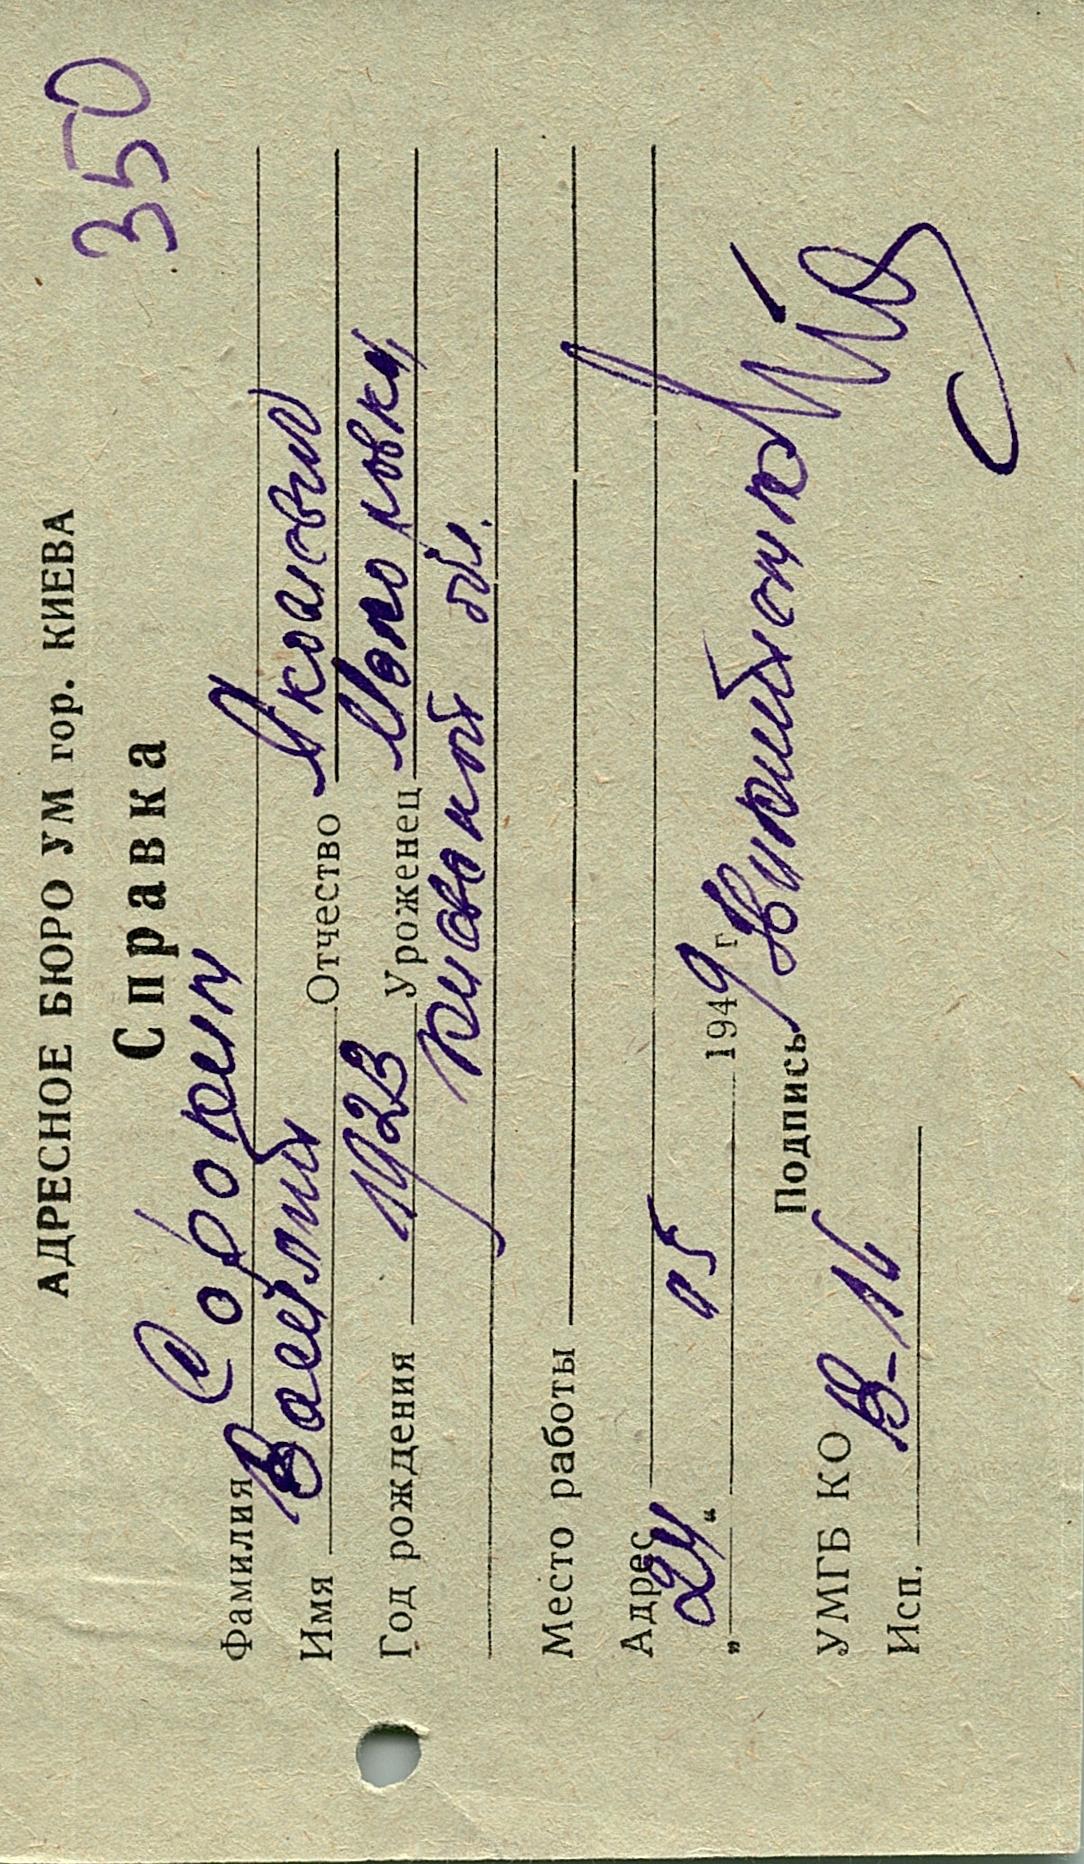 350
АДРЕСНОЕ БЮРО УМ гор. КИЕВА
Справка
Фамилия Сорокин
Имя Василий Отчество Яковлевич
Год рождения 1923 Уроженец
Киевской обл.
Место работы
Адрес
„24“ 05 1949 г.
Подпись
УМГБ КО
Исп. В-16